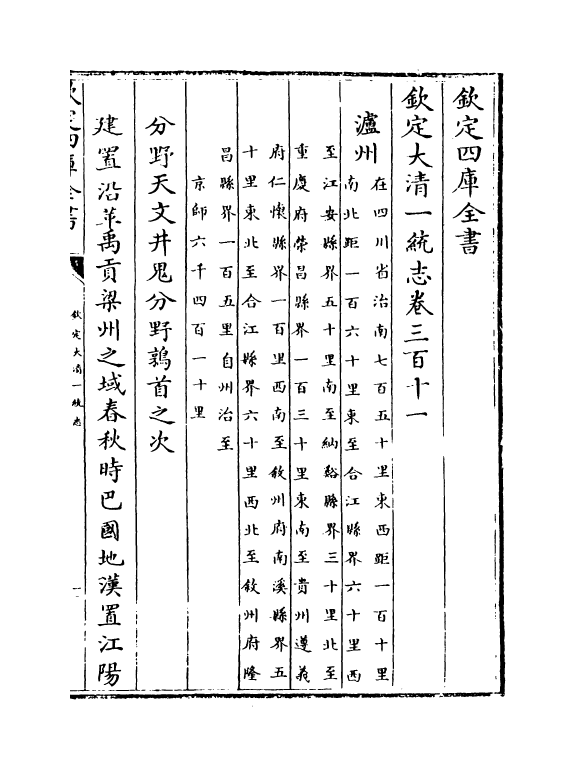 欽定四庫全書
欽定大清一統志卷三百十一
瀘州
在四川省治南七百五十里東西距一百十里
南北距一百六十里東至合江縣界六十里西
至江安縣界五十里南至納谿縣界三十里北至
重慶府榮昌縣界一百三十里東南至貴州遵義
府仁懷縣界一百里西南至敘州府南溪縣界五
十里東北至合江縣界六十里西北至敘州府隆
昌縣界一百五里自州治至
京師六千四百一十里
分野天文井鬼分野鶉首之次
建置沿革禹貢梁州之域春秋時巴國地漢置江陽
欽定四庫全書
欽定大清一統志